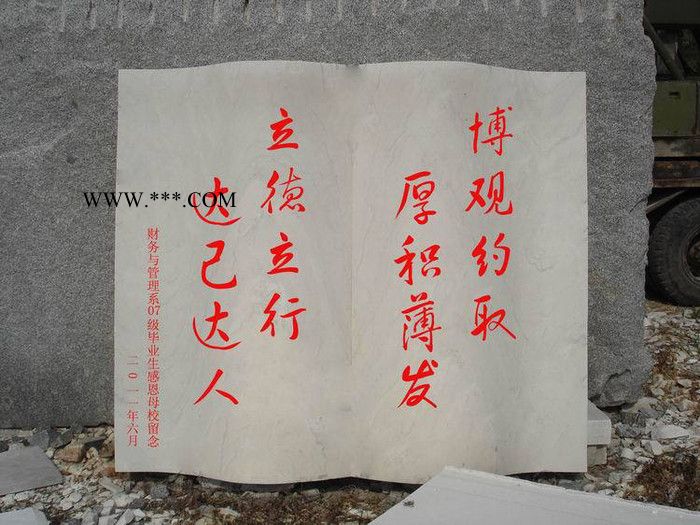 博观约取
厚积薄发
立德立行
达己达人
财务与管理系07级毕业生感恩母校留念
二0一一年六月
WWW.***.COM